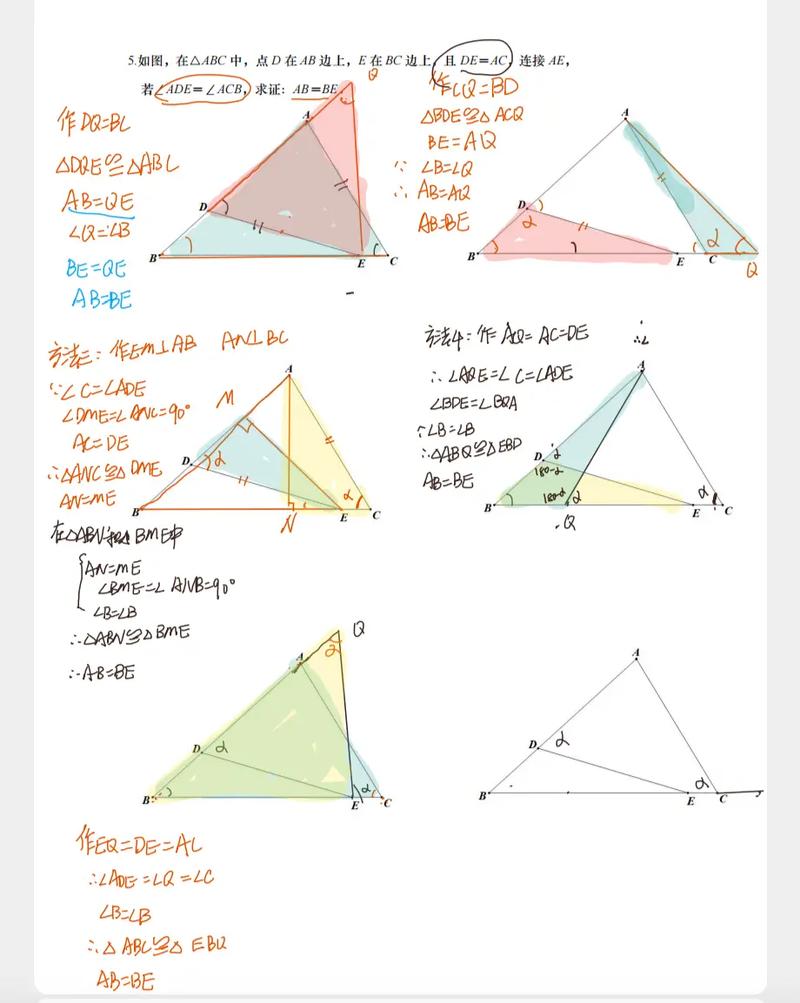 5.如图，在△ABC中，点D在AB边上，E在BC边上，且DE=AC，连接AE，
若∠ADE=∠ACB，求证：AB=BE.
作DQ=BC
△DQE≌△ABC
AB=QE
∠Q=∠B
BE=QE
AB=BE
A
Q
D
B
E
C
作CQ=BD
△BDE≌△ACQ
BE=AQ
∵ ∠B=∠Q
∴ AB=AQ
AB=BE
A
D
α
B
E
C
α
Q
方法三：作EM⊥AB AN⊥BC
∵∠C=∠ADE
∠DME=∠ANC=90°
AC=DE
∴△ANC≌△DME
AN=ME
在△ABN和△BME中
AN=ME
∠BME=∠ANB=90°
∠B=∠B
∴△ABN≌△BME
∴AB=BE
A
M
D
α
B
N
E
α
C
方法4：作AQ=AC=DE
∴∠AQE=∠C=∠ADE
∠BDE=∠BQA
∵∠B=∠B
∴△ABQ≌△EBD
AB=BE
∴∠
A
D
α
180-α
180-α
α
B
Q
E
α
C
Q
A
α
D
α
B
E
α
C
作EQ=DE=AC
∴∠ADE=∠Q=∠C
∠B=∠B
∴△ABC≌△EBQ
AB=BE
A
D
α
B
E
α
C